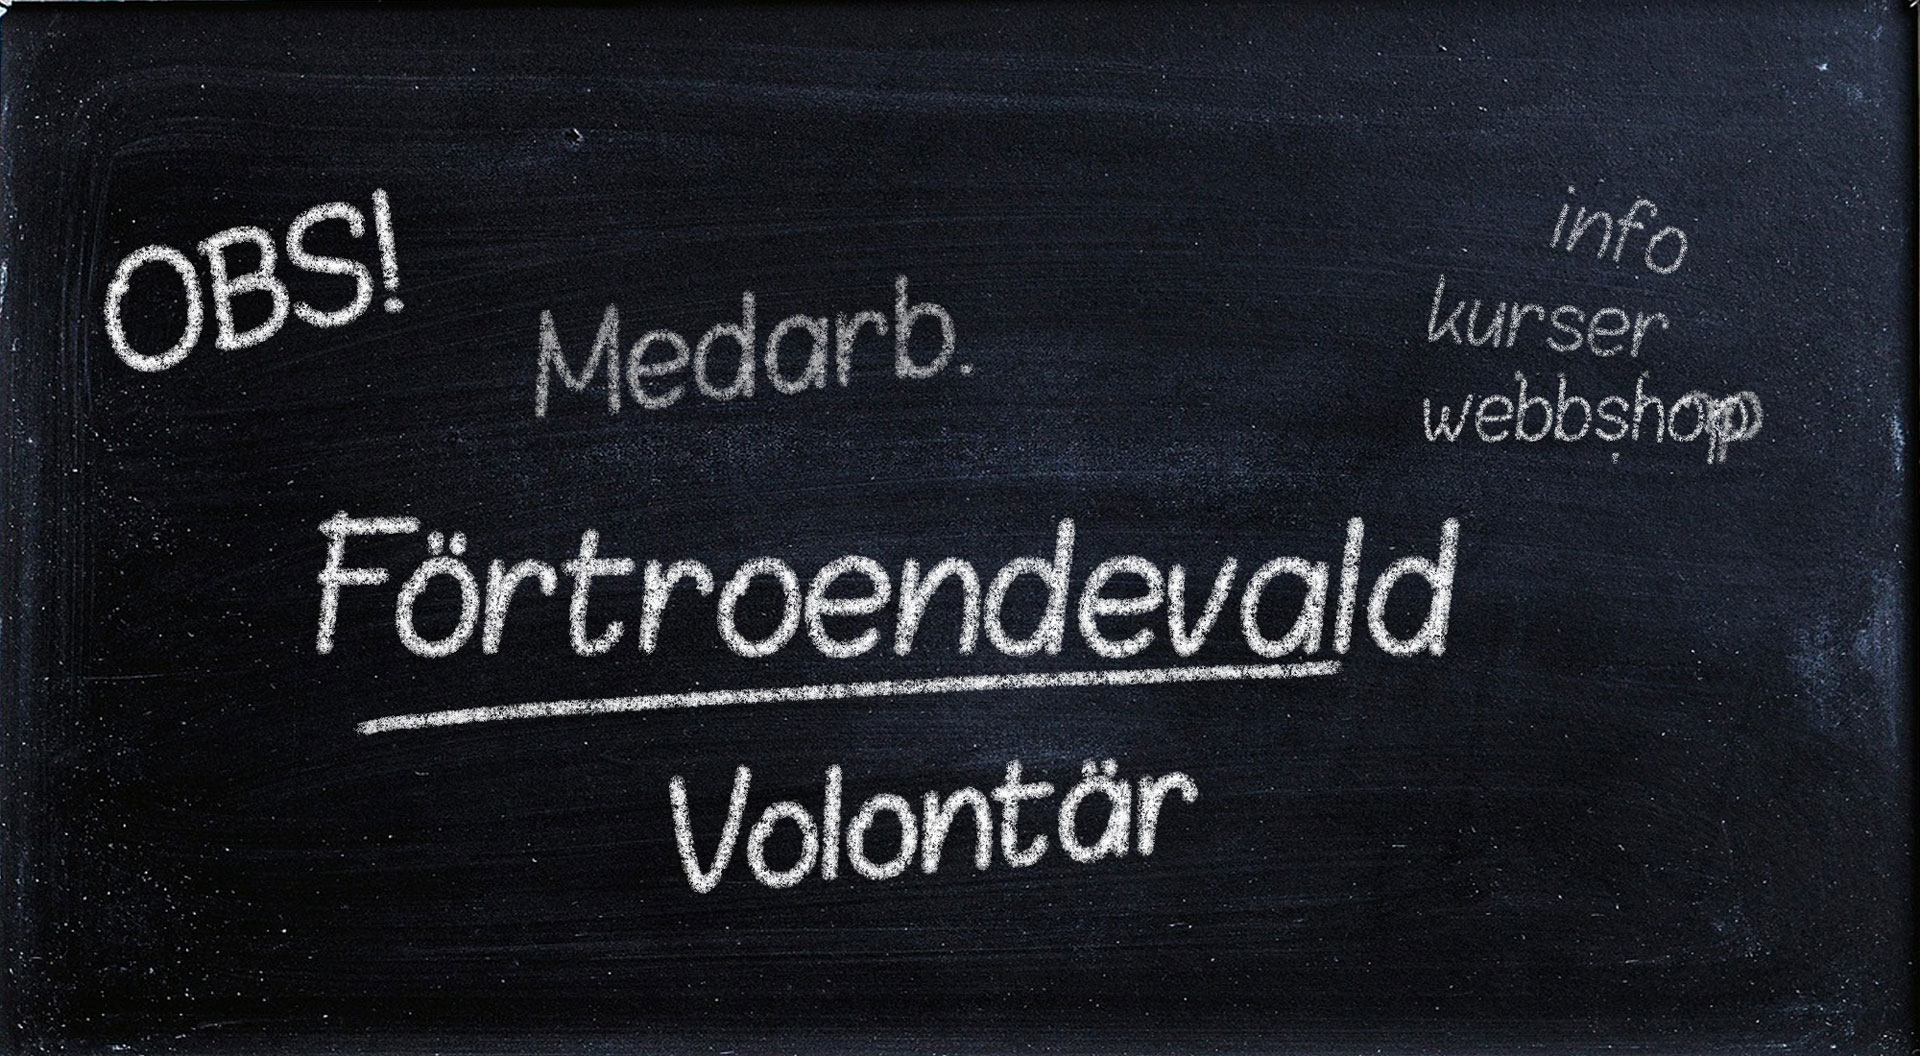 OBS!
Medarb.
info
kurser
webbshop
Förtroendevald
Volontär